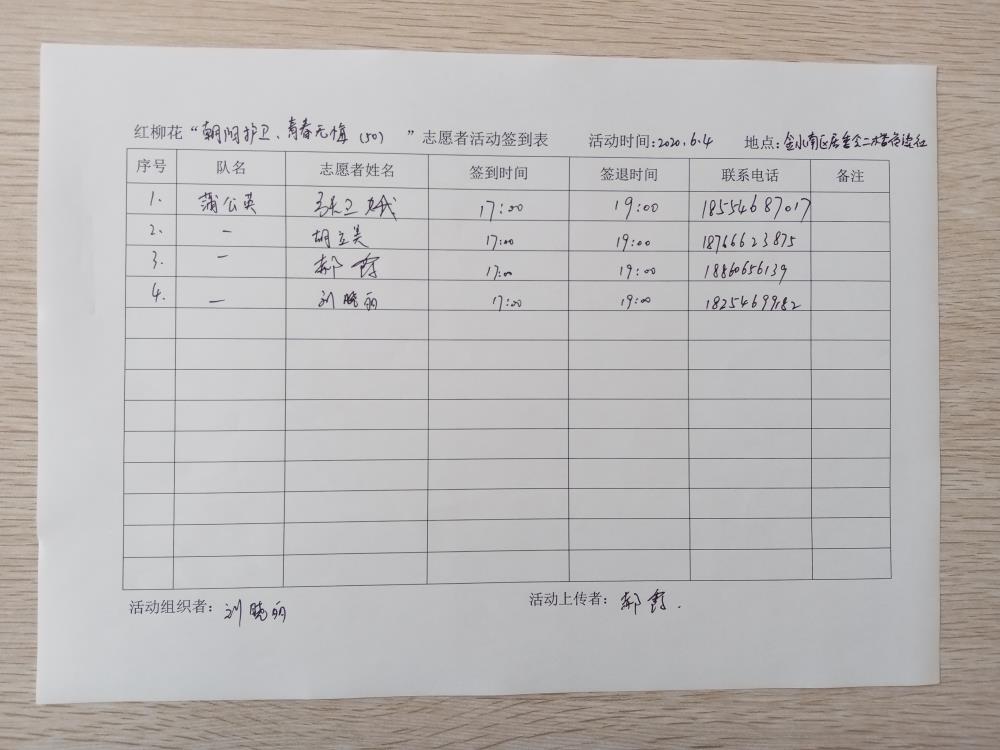 红柳花“朝阳护卫、青春无悔（50）”志愿者活动签到表 活动时间：2020.6.4 地点：金水南区
序号 队名 志愿者姓名 签到时间 签退时间 联系电话 备注
1. 蒲公英 卫 17:00 19:00 18554687017
2. 一 胡立美 17:00 19:00 18766623875
3. 一 郝霞 17:00 19:00 18860656139
4. 一 刘晓丽 17:00 19:00 18254699182
活动组织者：刘晓丽 活动上传者：郝霞.